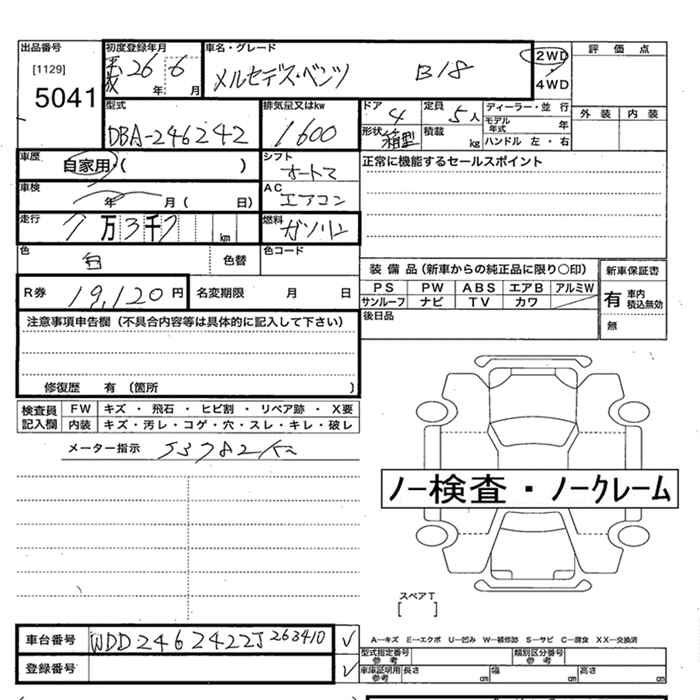 出品番号 初度登録年月 車名・グレード 2WD 評価点
[1129] 平成 26 6 メルセデス・ベンツ B18
年 月 4WD
5041 外装 内装
型式 排気量又はkw ドア 4 定員 5人 ディーラー・並行
モデル年式 年
DBA-246242 1600 形状 箱型 積載 kg ハンドル 左・右
車歴 自家用・( ) シフト オートマ 正常に機能するセールスポイント
車検 年 月( 日) AC エアコン
走行 万 3千 km 燃料 ガソリン
色 色替 色コード
装備品(新車からの純正品に限り○印) 新車保証書
PS PW ABS エアB アルミW 有 車内積込無効
R券 19,120円 名変期限 月 日 サンルーフ ナビ TV カワ
後日品 無
注意事項申告欄(不具合内容等は具体的に記入して下さい)
修復歴 有(箇所 )
検査員記入欄 FW キズ・飛石・ヒビ割・リペア跡・X要
内装 キズ・汚レ・コゲ・穴・スレ・キレ・破レ
メーター指示
ノー検査・ノークレーム
スペアT
[ ]
車台番号 WDD2462422J263410 A-キズ E-エクボ U-凹み W-補修跡 S-サビ C-腐食 XX-交換済
型式指定番号 参考 類別区分番号 参考
登録番号 車庫証明用 参考 長さ cm 幅 cm 高さ cm